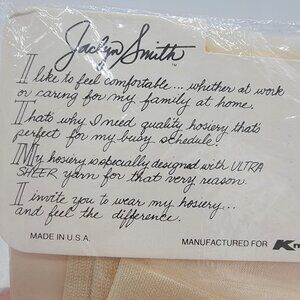 Jaclyn Smith™
I like to feel comfortable... whether at work
or caring for my family at home.
Thats why I need quality hosiery that's
perfect for my busy schedule.
My hosiery is especially designed with ULTRA
SHEER yarn for that very reason.
I invite you to wear my hosiery...
and feel the difference.
MADE IN U.S.A. MANUFACTURED FOR K